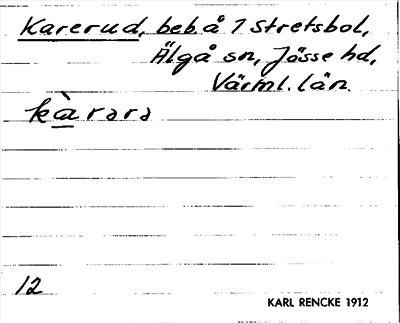 Karerud, beb. å 7 Stretsbol,
Älgå sn, Jösse hd,
Värml. län.
kàrərə
12
KARL RENCKE 1912